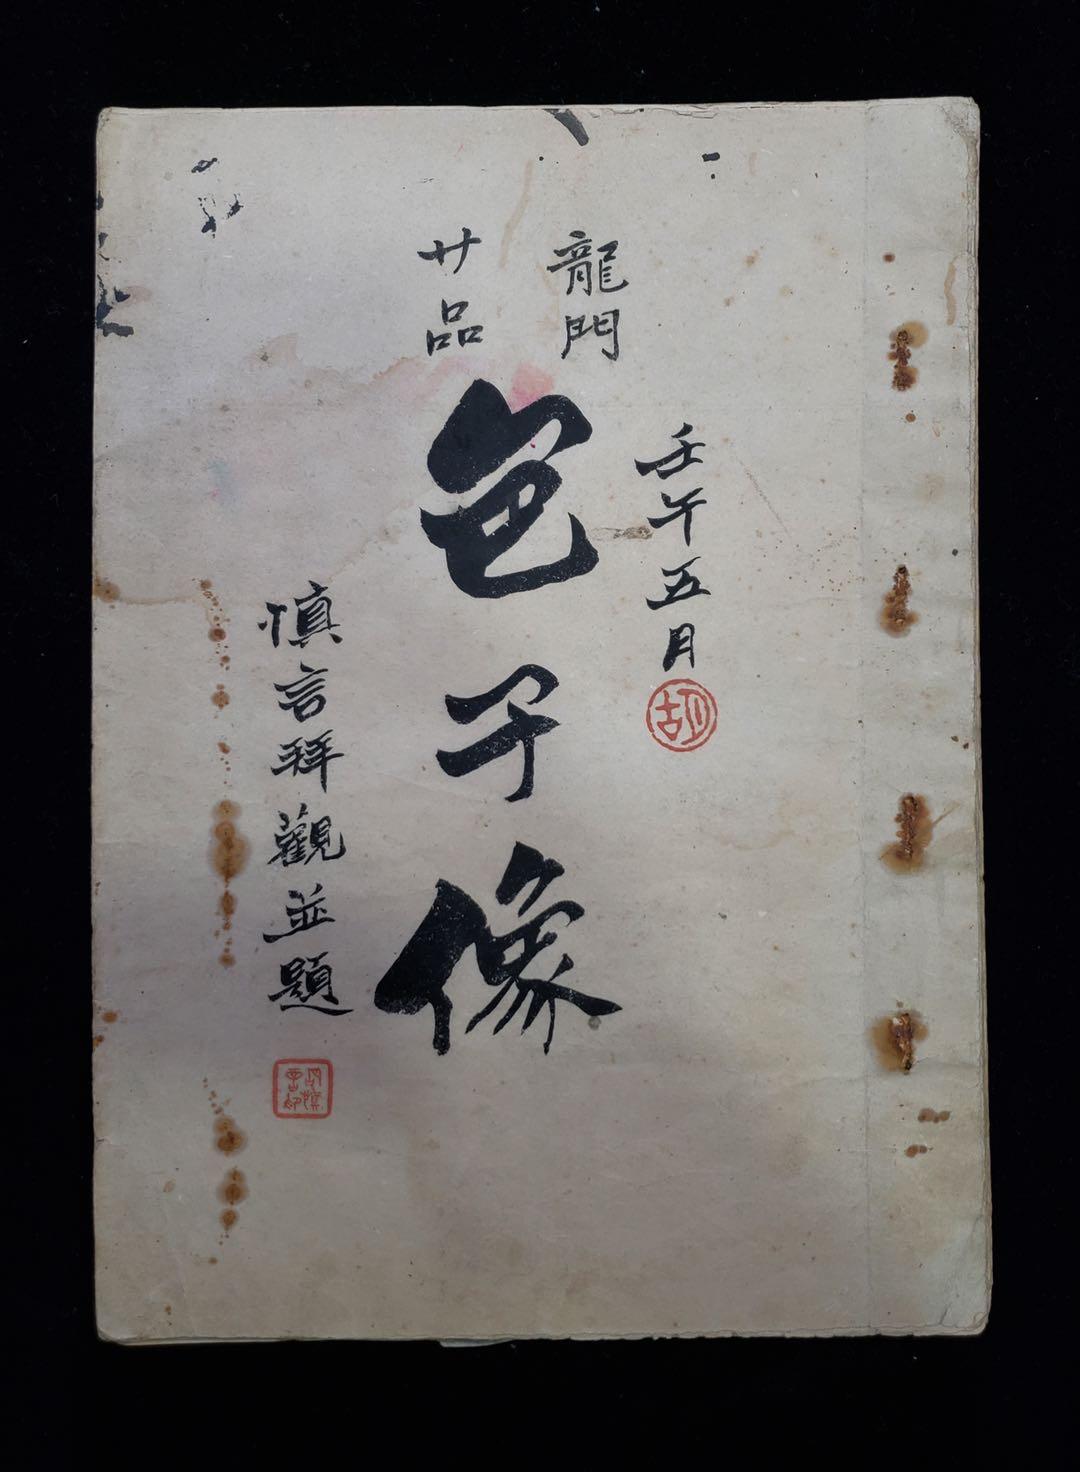 壬午五月
胡
龍門
廿品
邑子像
慎言拜觀並題
胡慎言印